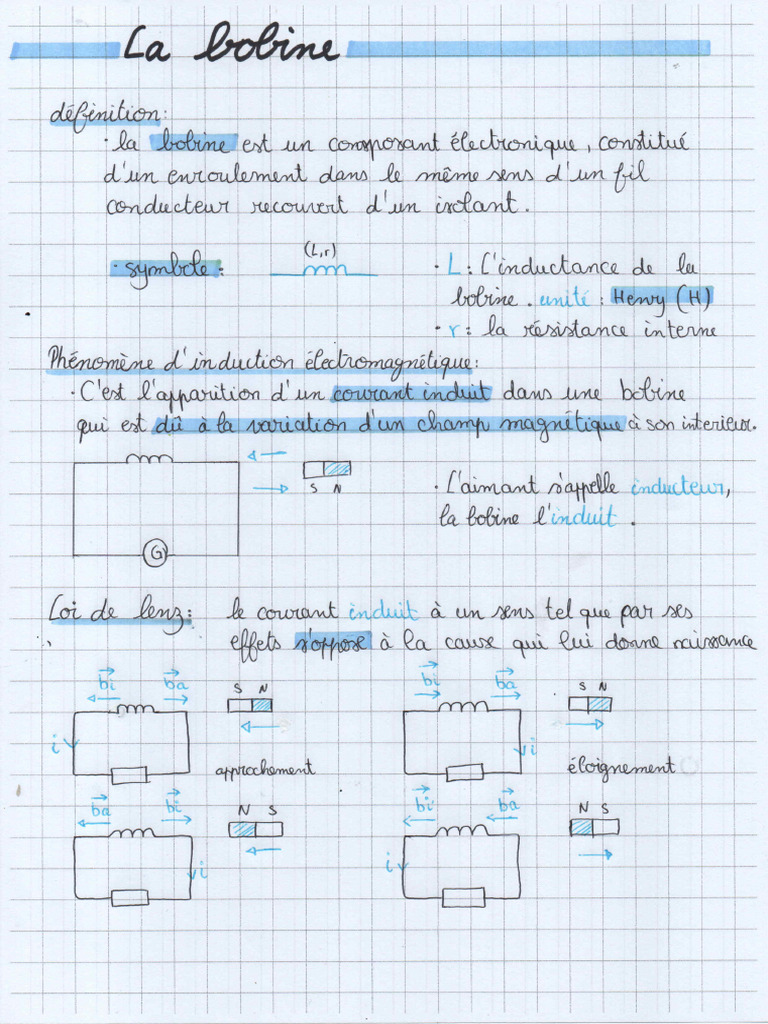 La bobine
définition:
· la bobine est un composant électronique, constitué
d'un enroulement dans le même sens d'un fil
conducteur recouvert d'un isolant.
· symbole :
(L,r)
· L : L'inductance de la
bobine. unité : Henry (H)
· r : la résistance interne
Phénomène d'induction électromagnétique :
· C'est l'apparition d'un courant induit dans une bobine
qui est dû à la variation d'un champ magnétique à son interieur.
S N
· L'aimant s'appelle inducteur,
la bobine l'induit .
G
Loi de lenz : le courant induit à un sens tel que par ses
effets s'oppose à la cause qui lui donne naissance
bi ba S N bi ba S N
i approchement i éloignement
ba bi N S bi ba N S
i i